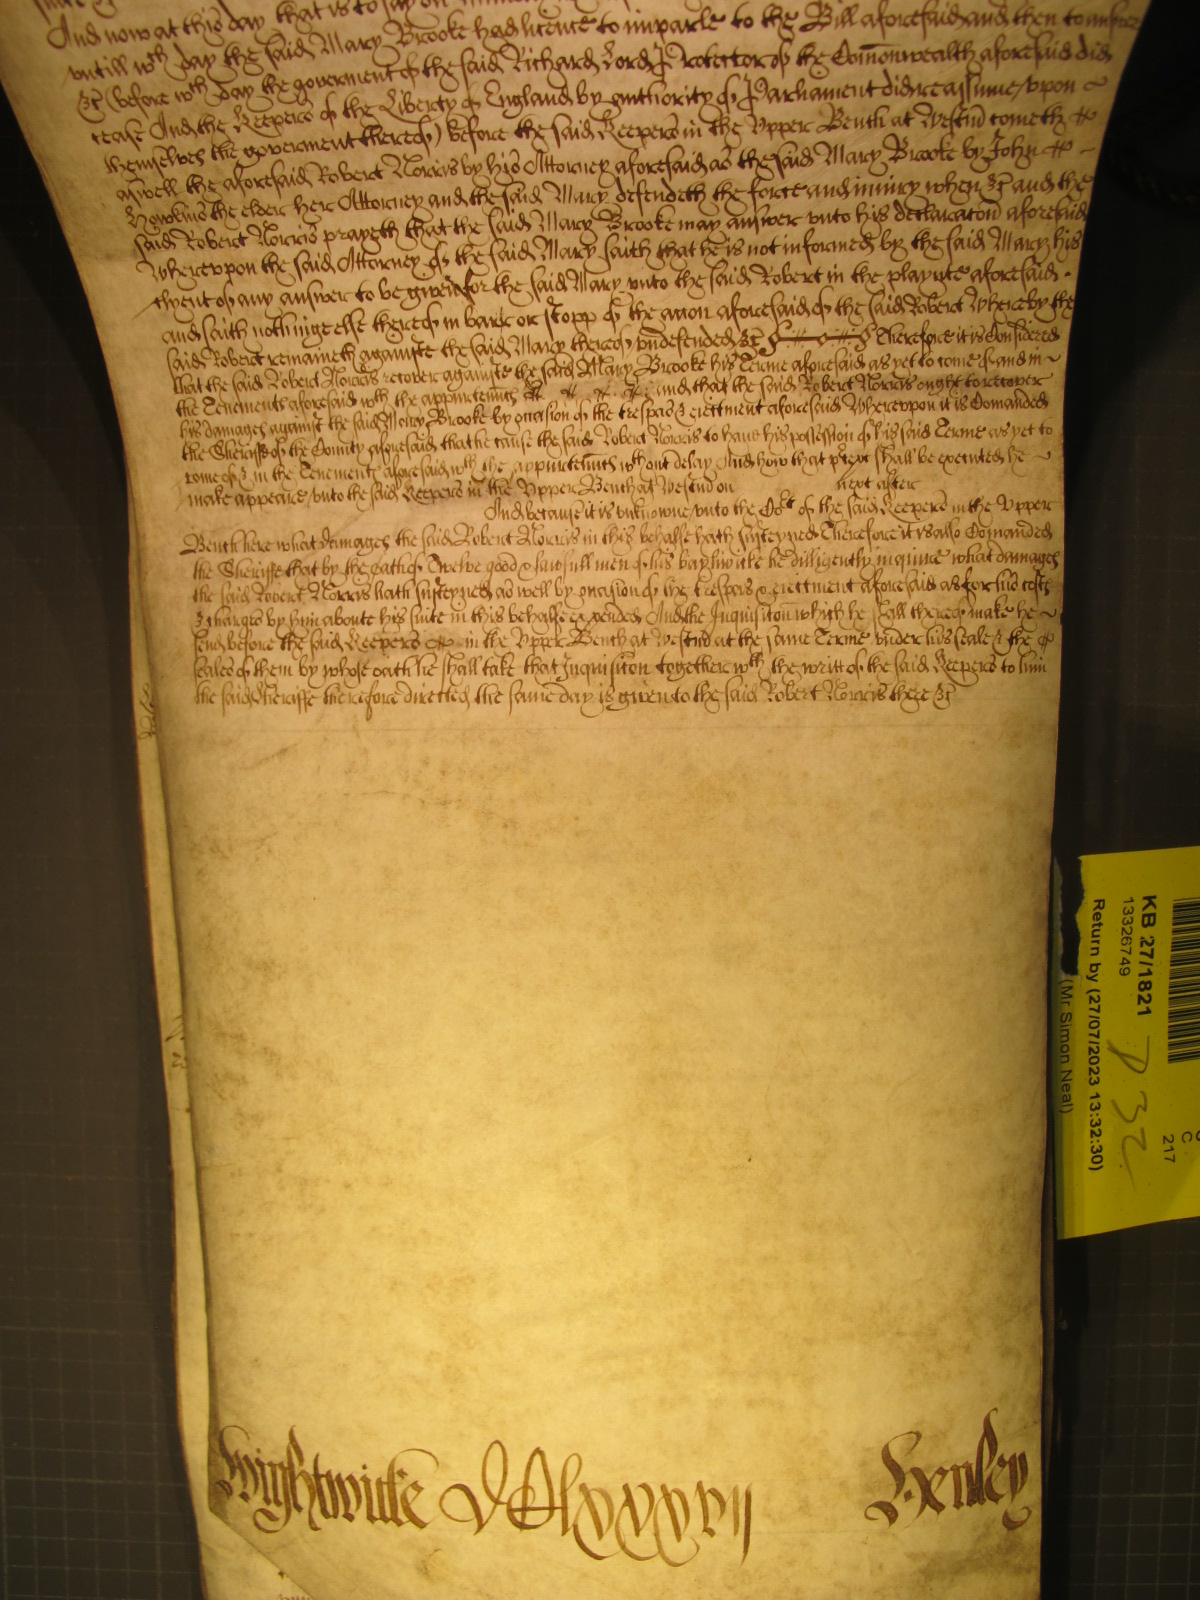 And now at this day that is to say on
untill wch day the said Mary Brooke had licence to imparle to the Bill aforesaid and then to answere
&c (before wch day the goverment of the said Richard Lord Protector of the Comonwealth aforesaid did
cease And the Keepers of the Liberty of England by authority of Parliament did reassume upon
themselves the goverment thereof) before the said Keepers in the Upper Bench at Westm cometh
aswell the aforesaid Robert Norris by his Attorney aforesaid as the said Mary Brooke by John
Hawkins the elder her Attorney and the said Mary defendeth the force and iniury when &c and the
said Robert Norris prayeth that the said Mary Brooke may answer unto his declaracon aforesaid
Whereupon the said Attorney of the said Mary saith that he is not informed by the said Mary his
clyent of any answer to be given for the said Mary unto the said Robert in the playnte aforesaid
and saith nothinge else thereof in barr or stopp of the accon aforesaid of the said Robert Whereby the
said Robert remaineth againste the said Mary thereof undefended &c Therefore it is Considered
that the said Robert Norris recover againste the said Mary Brooke his Terme aforesaid as yet to come of and in
the Tenements aforesaid wth the appurtennts &c And that the said Robert Norris ought to recover
his damages against the said Mary Brooke by occasion of the trespas & eiectment aforesaid Whereupon it is Comanded
the Sheriffe of the County aforesaid that he cause the said Robert Norris to have his possession of his said Terme as yet to
come of & in the Tenements aforesaid wth the appurtennts wthout delay And how that prcept shall be executed he
make appeare unto the said Keepers in the Upper Bench at Westm on next after
And because it is unknowne unto the Cort of the said Keepers in the Upper
Bench here what damages the said Robert Norris in this behalfe hath susteyned Therefore it is also Comanded
the Sheriffe that by the oath of Twelve good & lawfull men of his bayliwicke he dilligently inquire what damages
the said Robert Norris hath susteyned as well by occasion of the trespas & eiectment aforesaid as for his costs
& charges by him aboute his suite in this behalfe expended And the Inquisicon which he shall thereof make he
send before the said Keepers &c in the Upper Bench at Westm at the same Terme under his seale & the
seales of them by whose oath he shall take that Inquisicon together wth the writt of the said Keepers to him
the said Sheriffe therefore directed the same day is given to the said Robert Norris there &c
Wightwicke DClxxxvii Henley
KB 27/1821
13326749
Return by (27/07/2023 13:32:30)
(Mr Simon Neal)
C
217
D 32